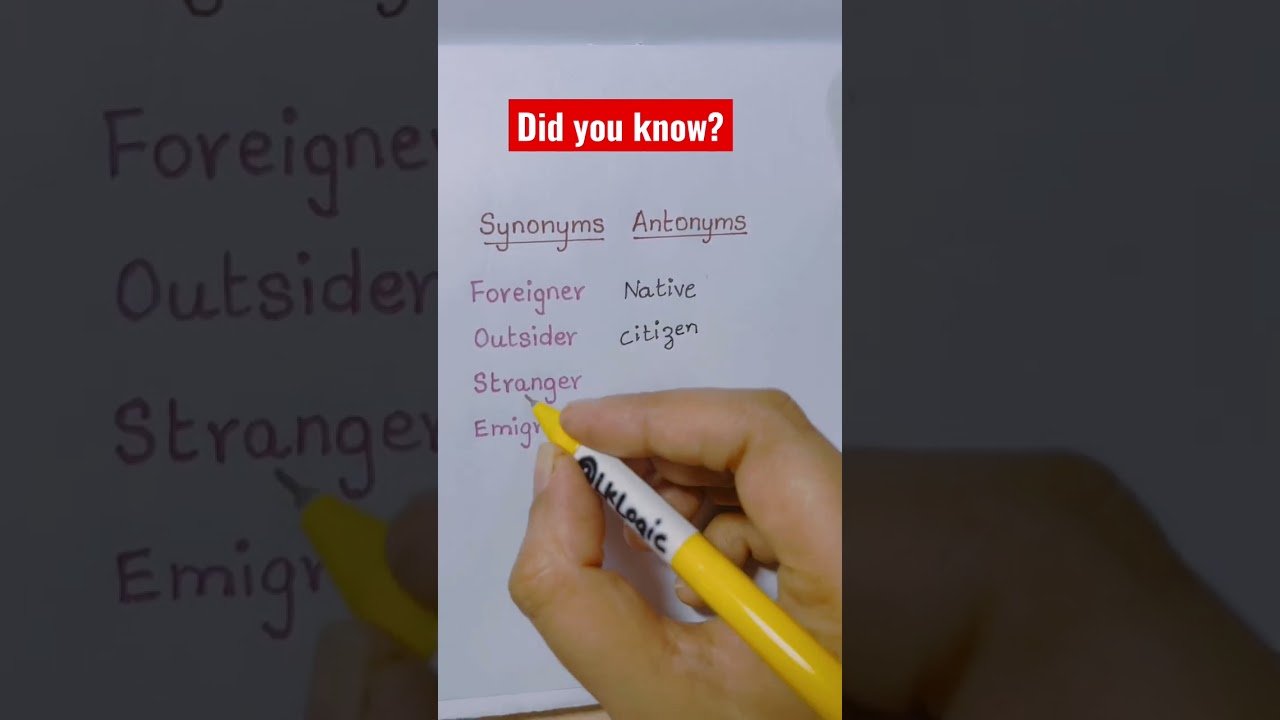 Did you know?
Synonyms Antonyms
Foreigner Native
Outsider citizen
Stranger
@LKLogic